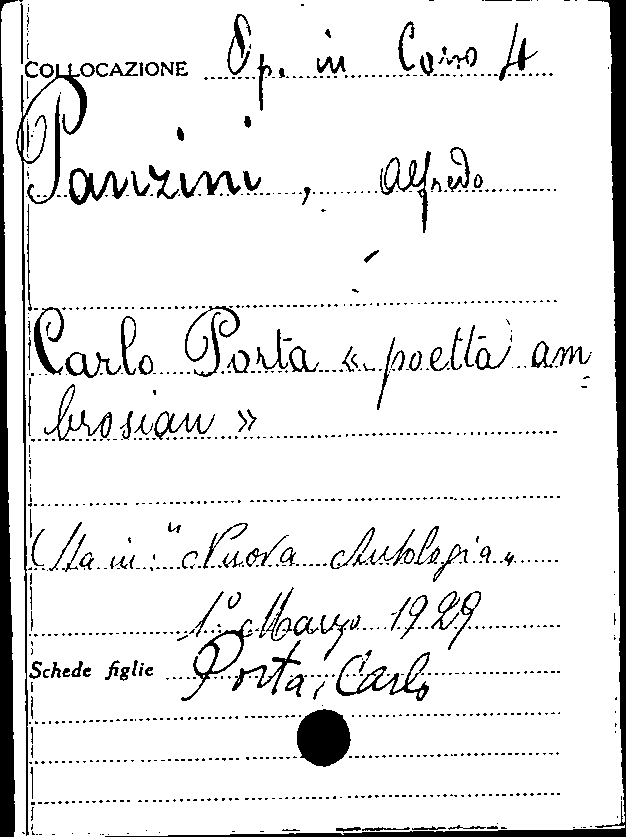 COLLOCAZIONE Op. in Corso A
Panzini, Alfredo
Carlo Porta « poetta am=
brosian »
Sta in: "Nuova Antologia„
1° Marzo 1929
Schede figlie Porta, Carlo